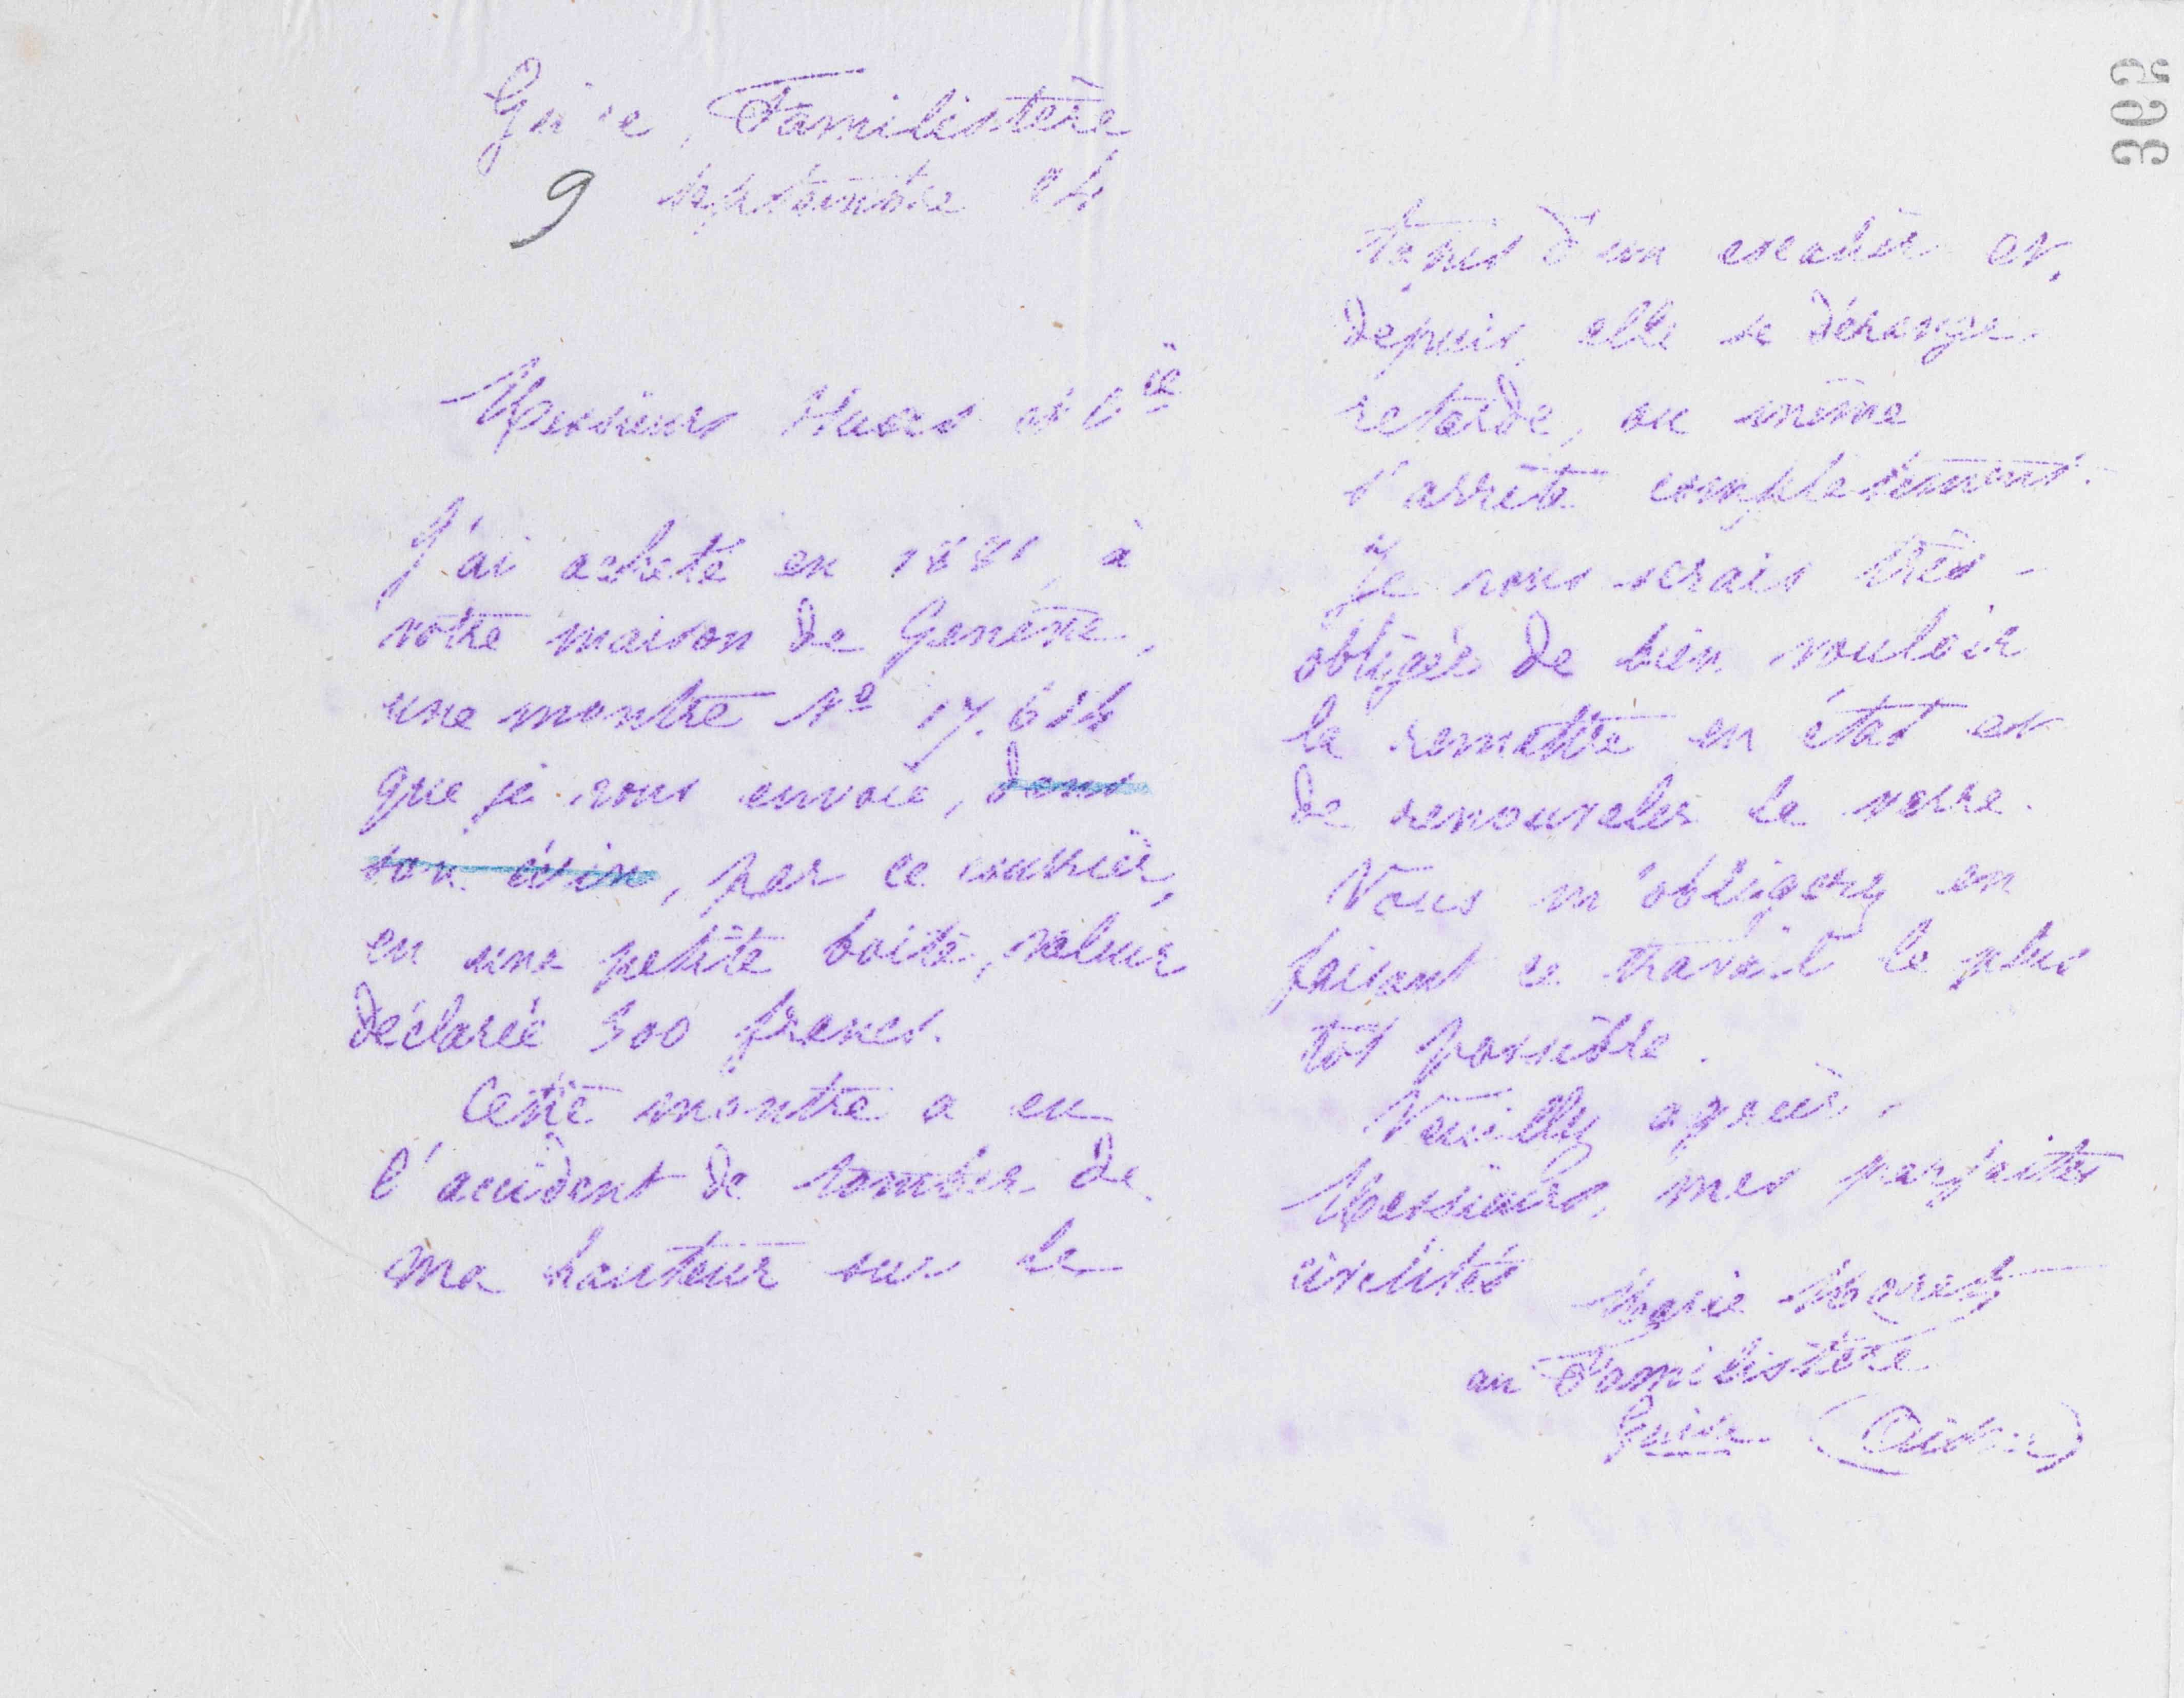 Guise, Familistère
9 septembre 84
Messieurs et Cie
J'ai acheté en 1881, à
votre maison de Genève,
une montre No 17.614
que je vous envoie, dans
son écrin, par ce courrier,
en une petite boîte, valeur
déclarée 300 francs.
Cette montre a eu
l'accident de tomber de
ma hauteur sur le
tapis d'un escalier et,
depuis, elle se dérange
retarde, ou même
s'arrête complètement.
Je vous serais très-
obligée de bien vouloir
la remettre en état et
de renouveler le verre.
Vous m'obligerez en
faisant ce travail le plus
tôt possible.
Veuillez agréer,
Messieurs, mes parfaites
civilités
Marie Moret
au Familistère
Guise (Aisne)
365